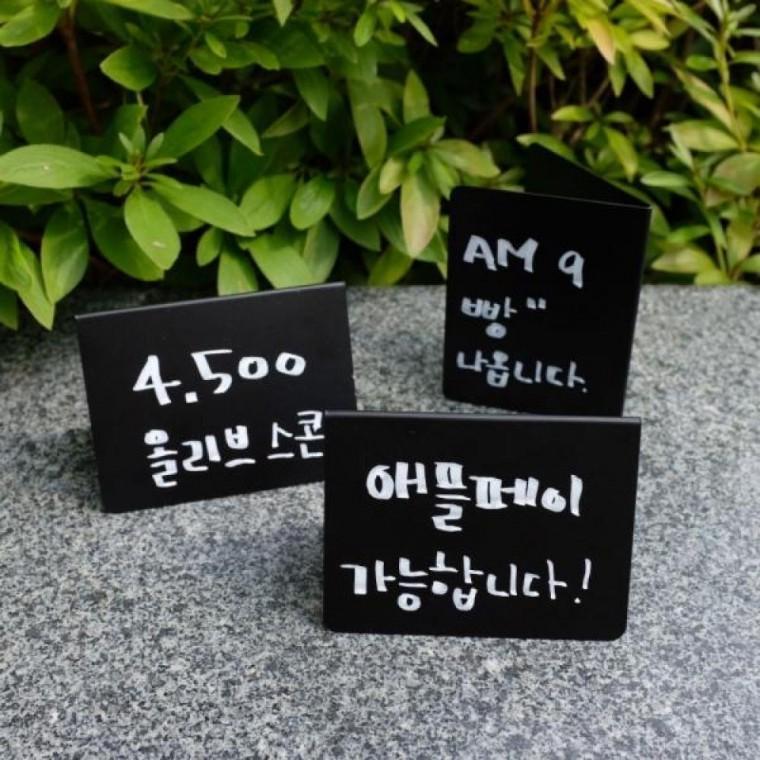 AM 9
빵"
나옵니다.
4.500
올리브 스콘
애플페이
가능합니다!